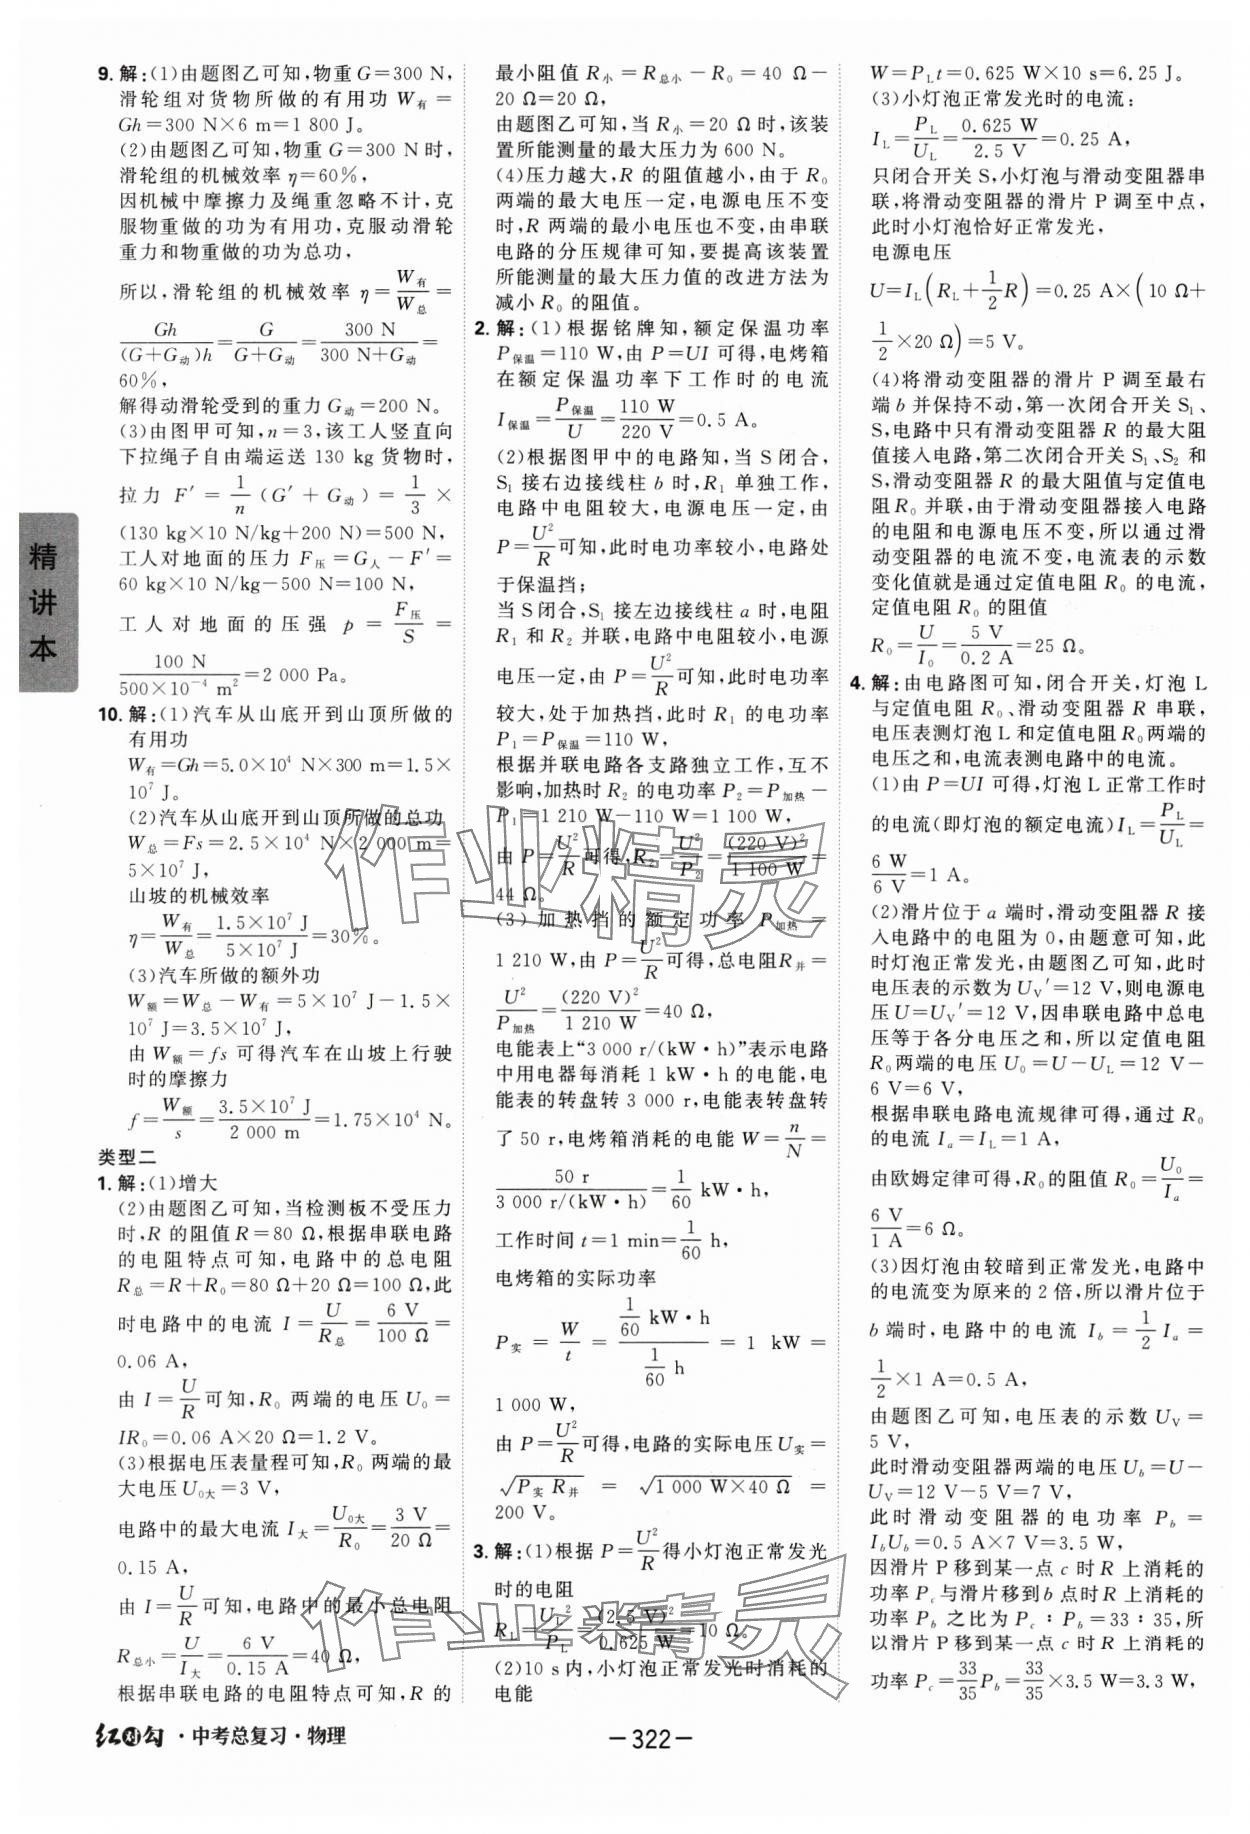 9. 解:(1)由题图乙可知,物重G=300 N,
滑轮组对货物所做的有用功 W有=
Gh=300 N×6 m=1 800 J。
(2)由题图乙可知,物重G=300 N时,
滑轮组的机械效率 η=60%,
因机械中摩擦力及绳重忽略不计,克
服物重做的功为有用功,克服动滑轮
重力和物重做的功为总功,
所以,滑轮组的机械效率 η=W有/W总=
Gh/(G+G动)h=G/G+G动=300 N/300 N+G动=
60%,
解得动滑轮受到的重力 G动=200 N。
(3)由图甲可知,n=3,该工人竖直向
下拉绳子自由端运送 130 kg 货物时,
拉力 F′=1/n(G′+G动)=1/3×
(130 kg×10 N/kg+200 N)=500 N,
工人对地面的压力 F压=G人-F′=
60 kg×10 N/kg-500 N=100 N,
工人对地面的压强 p=F压/S=
100 N/500×10⁻⁴ m²=2 000 Pa。
10. 解:(1)汽车从山底开到山顶所做的
有用功
W有=Gh=5.0×10⁴ N×300 m=1.5×
10⁷ J。
(2)汽车从山底开到山顶所做的总功
W总=Fs=2.5×10⁴ N×2 000 m=
5×10⁷ J,
山坡的机械效率
η=W有/W总=1.5×10⁷ J/5×10⁷ J=30%。
(3)汽车所做的额外功
W额=W总-W有=5×10⁷ J-1.5×
10⁷ J=3.5×10⁷ J,
由 W额=fs 可得汽车在山坡上行驶
时的摩擦力
f=W额/s=3.5×10⁷ J/2 000 m=1.75×10⁴ N。
类型二
1. 解:(1)增大
(2)由题图乙可知,当检测板不受压力
时,R 的阻值R=80 Ω,根据串联电路
的电阻特点可知,电路中的总电阻
R总=R+R₀=80 Ω+20 Ω=100 Ω,此
时电路中的电流 I=U/R总=6 V/100 Ω=
0.06 A,
由 I=U/R可知,R₀ 两端的电压U₀=
IR₀=0.06 A×20 Ω=1.2 V。
(3)根据电压表量程可知,R₀ 两端的最
大电压U₀大=3 V,
电路中的最大电流 I大=U₀大/R₀=3 V/20 Ω=
0.15 A,
由 I=U/R可知,电路中的最小总电阻
R总小=U/I大=6 V/0.15 A=40 Ω,
根据串联电路的电阻特点可知,R 的
最小阻值 R小=R总小-R₀=40 Ω-
20 Ω=20 Ω,
由题图乙可知,当 R小=20 Ω时,该装
置所能测量的最大压力为 600 N。
(4)压力越大,R 的阻值越小,由于 R₀
两端的最大电压一定,电源电压不变
时,R 两端的最小电压也不变,由串联
电路的分压规律可知,要提高该装置
所能测量的最大压力值的改进方法为
减小 R₀ 的阻值。
2. 解:(1)根据铭牌知,额定保温功率
P保温=110 W,由 P=UI 可得,电烤箱
在额定保温功率下工作时的电流
I保温=P保温/U=110 W/220 V=0.5 A。
(2)根据图甲中的电路知,当 S 闭合,
S₁ 接右边接线柱 b 时,R₁ 单独工作,
电路中电阻较大,电源电压一定,由
P=U²/R可知,此时电功率较小,电路处
于保温挡;
当 S闭合,S₁ 接左边接线柱 a 时,电阻
R₁ 和 R₂ 并联,电路中电阻较小,电源
电压一定,由 P=U²/R可知,此时电功率
较大,处于加热挡,此时 R₁ 的电功率
P₁=P保温=110 W,
根据并联电路各支路独立工作,互不
影响,加热时 R₂ 的电功率 P₂=P加热-
P₁=1 210 W-110 W=1 100 W,
由 P=U²/R可得,R₂=U²/P₂=(220 V)²/1 100 W=
44 Ω。
(3)加热挡的额定功率 P加热=
1 210 W,由 P=U²/R可得,总电阻R并=
U²/P加热=(220 V)²/1 210 W=40 Ω,
电能表上“3 000 r/(kW·h)”表示电路
中用电器每消耗 1 kW·h 的电能,电
能表的转盘转 3 000 r,电能表转盘转
了 50 r,电烤箱消耗的电能 W=n/N=
50 r/3 000 r/(kW·h)=1/60 kW·h,
工作时间 t=1 min=1/60 h,
电烤箱的实际功率
P实=W/t=1/60 kW·h/1/60 h=1 kW=
1 000 W,
由 P=U²/R可得,电路的实际电压U实=
√P实R并=√1 000 W×40 Ω=
200 V。
3. 解:(1)根据 P=U²/R得小灯泡正常发光
时的电阻
R_L=U_L²/P_L=(2.5 V)²/0.625 W=10 Ω。
(2)10 s内,小灯泡正常发光时消耗的
电能
W=P_Lt=0.625 W×10 s=6.25 J。
(3)小灯泡正常发光时的电流:
I_L=P_L/U_L=0.625 W/2.5 V=0.25 A,
只闭合开关 S,小灯泡与滑动变阻器串
联,将滑动变阻器的滑片 P 调至中点,
此时小灯泡恰好正常发光,
电源电压
U=I_L(R_L+1/2R)=0.25 A×(10 Ω+
1/2×20 Ω)=5 V。
(4)将滑动变阻器的滑片 P 调至最右
端 b 并保持不动,第一次闭合开关 S₁、
S,电路中只有滑动变阻器 R 的最大阻
值接入电路,第二次闭合开关 S₁、S₂ 和
S,滑动变阻器 R 的最大阻值与定值电
阻 R₀ 并联,由于滑动变阻器接入电路
的电阻和电源电压不变,所以通过滑
动变阻器的电流不变,电流表的示数
变化值就是通过定值电阻 R₀ 的电流,
定值电阻 R₀ 的阻值
R₀=U/I₀=5 V/0.2 A=25 Ω。
4. 解:由电路图可知,闭合开关,灯泡 L
与定值电阻 R₀、滑动变阻器 R 串联,
电压表测灯泡 L 和定值电阻 R₀两端的
电压之和,电流表测电路中的电流。
(1)由 P=UI 可得,灯泡 L 正常工作时
的电流(即灯泡的额定电流)I_L=P_L/U_L=
6 W/6 V=1 A。
(2)滑片位于 a 端时,滑动变阻器 R 接
入电路中的电阻为 0,由题意可知,此
时灯泡正常发光,由题图乙可知,此时
电压表的示数为U_V′=12 V,则电源电
压U=U_V′=12 V,因串联电路中总电
压等于各分电压之和,所以定值电阻
R₀两端的电压 U₀=U-U_L=12 V-
6 V=6 V,
根据串联电路电流规律可得,通过 R₀
的电流 I_a=I_L=1 A,
由欧姆定律可得,R₀的阻值 R₀=U₀/I_a=
6 V/1 A=6 Ω。
(3)因灯泡由较暗到正常发光,电路中
的电流变为原来的 2 倍,所以滑片位于
b 端时,电路中的电流 I_b=1/2 I_a=
1/2×1 A=0.5 A,
由题图乙可知,电压表的示数 U_V=
5 V,
此时滑动变阻器两端的电压 U_b=U-
U_V=12 V-5 V=7 V,
此时滑动变阻器的电功率 P_b=
I_bU_b=0.5 A×7 V=3.5 W,
因滑片 P 移到某一点 c 时 R 上消耗的
功率 P_c与滑片移到 b 点时 R 上消耗的
功率 P_b 之比为 P_c∶P_b=33∶35,所
以滑片 P 移到某一点 c 时 R 上消耗的
功率 P_c=33/35P_b=33/35×3.5 W=3.3 W,
精讲本
作业精灵
作业精灵
红对勾·中考总复习·物理
-322-